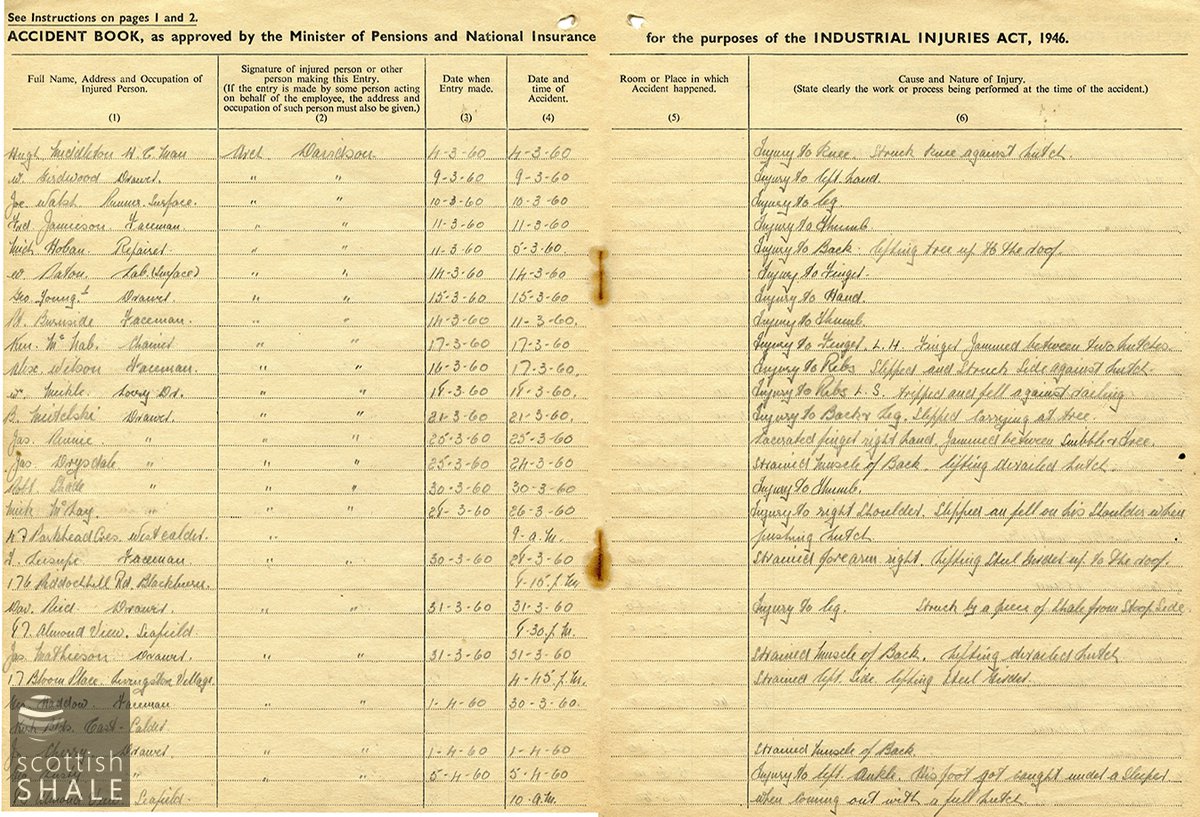 See Instructions on pages 1 and 2.
ACCIDENT BOOK, as approved by the Minister of Pensions and National Insurance for the purposes of the INDUSTRIAL INJURIES ACT, 1946.
Full Name, Address and Occupation of Injured Person. (1)
Signature of injured person or other person making this Entry. (If the entry is made by some person acting on behalf of the employee, the address and occupation of such person must also be given.) (2)
Date when Entry made. (3)
Date and time of Accident. (4)
Room or Place in which Accident happened. (5)
Cause and Nature of Injury. (State clearly the work or process being performed at the time of the accident.) (6)
Hugh Middleton H.C. Man Arch. Davidson 4-3-60 4-3-60 Injury to Knee. Struck Knee against hutch.
W. Girdwood Drawer. " " 9-3-60 9-3-60 Injury to left hand.
Joe. Walsh Runner. Surface. " " 10-3-60 10-3-60 Injury to leg.
Fred. Jamieson. Faceman. " " 11-3-60 11-3-60 Injury to Thumb.
Mich Hoban Repairer. " " 11-3-60 5-3-60. Injury to Back. lifting tree up to the roof.
W. Paton. Lab. (Surface) " " 14-3-60 14-3-60 Injury to Finger.
Geo. Young. Drawer. " " 15-3-60 15-3-60 Injury to Hand.
Burnside Faceman. " " 14-3-60 11-3-60. Injury to Thumb.
Ken. McNab. Chainer " " 17-3-60 17-3-60 Injury to Finger. L.H. Finger Jammed between two hutches.
Alex. Wilson Faceman. " " 16-3-60 17-3-60. Injury to Ribs Slipped and Struck Side against hutch.
W. Meikle Lorry Dr. " " 18-3-60 18-3-60. Injury to Ribs L.S. tripped and fell against railing
B. Drawer. " " 21-3-60 21-3-60. Injury to Back & Leg. Slipped carrying at tree.
Jas. Rennie. " " " 25-3-60 25-3-60. Lacerated finger right hand. Jammed between & Tree.
Jas. Drysdale " " " 25-3-60 24-3-60 Strained Muscle of Back. lifting derailed hutch.
Robt. Shade " " " 30-3-60 30-3-60 Injury to Thumb.
Mich McLay. " " " 28-3-60 26-3-60 Injury to right Shoulder. Slipped an fell on his Shoulder when
47 Parkhead Cres. West Calder. " 9-a.m. pushing hutch.
Faceman " " 30-3-60 28-3-60 Strained forearm right. lifting Steel Girder up to the roof.
176 Riddochhill Rd. Blackburn. 8-15 p.m
Dav. Reid Drawer. " " 31-3-60 31-3-60 Injury to leg. Struck by a piece of shale from Stoop Side
97. Almond View. Seafield. 9-30. p.m.
Jas Mathieson Drawer " " 31-3-60 31-3-60 Strained Muscle of Back. lifting derailed hutch
17 Bloom Place. Livingston Village. 4-45 p.m. Strained left Side lifting Steel Girder.
Haddow. Faceman " " 1-4-60 30-3-60.
East-Calder.
Cherry Drawer " " 1-4-60 1-4-60 Strained Muscle of Back.
" " " 5-4-60 5-4-60 Injury to left Ankle. His foot got caught under a sleeper
Seafield. 10.a.m. when coming out with a full hutch.
scottish
SHALE